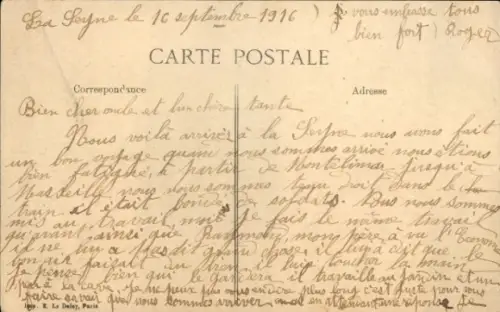 La Seyne le 16 septembre 1916
Je vous embrasse tous
bien fort Roger
CARTE POSTALE
Correspondance
Adresse
Bien cher oncle et bien chère tante
Nous voilà arrivés à la Seyne nous avons fait
un bon voyage quand nous sommes arrivé nous étions
bien fatigués, a partir de Montélimar jusqu'à
Marseille nous nous sommes tenu droit dans le
train il était bondé de soldats. Nous nous sommes
mis au travail, moi je fais le même travail
qu'avant ainsi que Raymond, mon père, a vu l'
il ne lui a pas dit grand chose, il lui a dit que le
je pense bien qu'il le gardera, il travaille au jardin et un
peu à la cave, Je ne peux plus vous en dire plus long c'est juste pour vous
faire savoir que nous sommes arriver, en attendant une réponse je
Imp. E. Le Deley, Paris